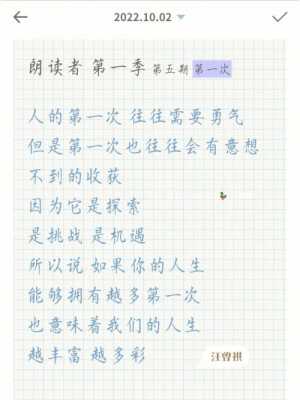 2022.10.02
朗读者 第一季 第五期 第一次
人的第一次 往往需要勇气
但是第一次也往往会有意想
不到的收获
因为它是探索
是挑战 是机遇
所以说 如果你的人生
能够拥有越多第一次
也意味着我们的人生
越丰富 越多彩
汪曾祺